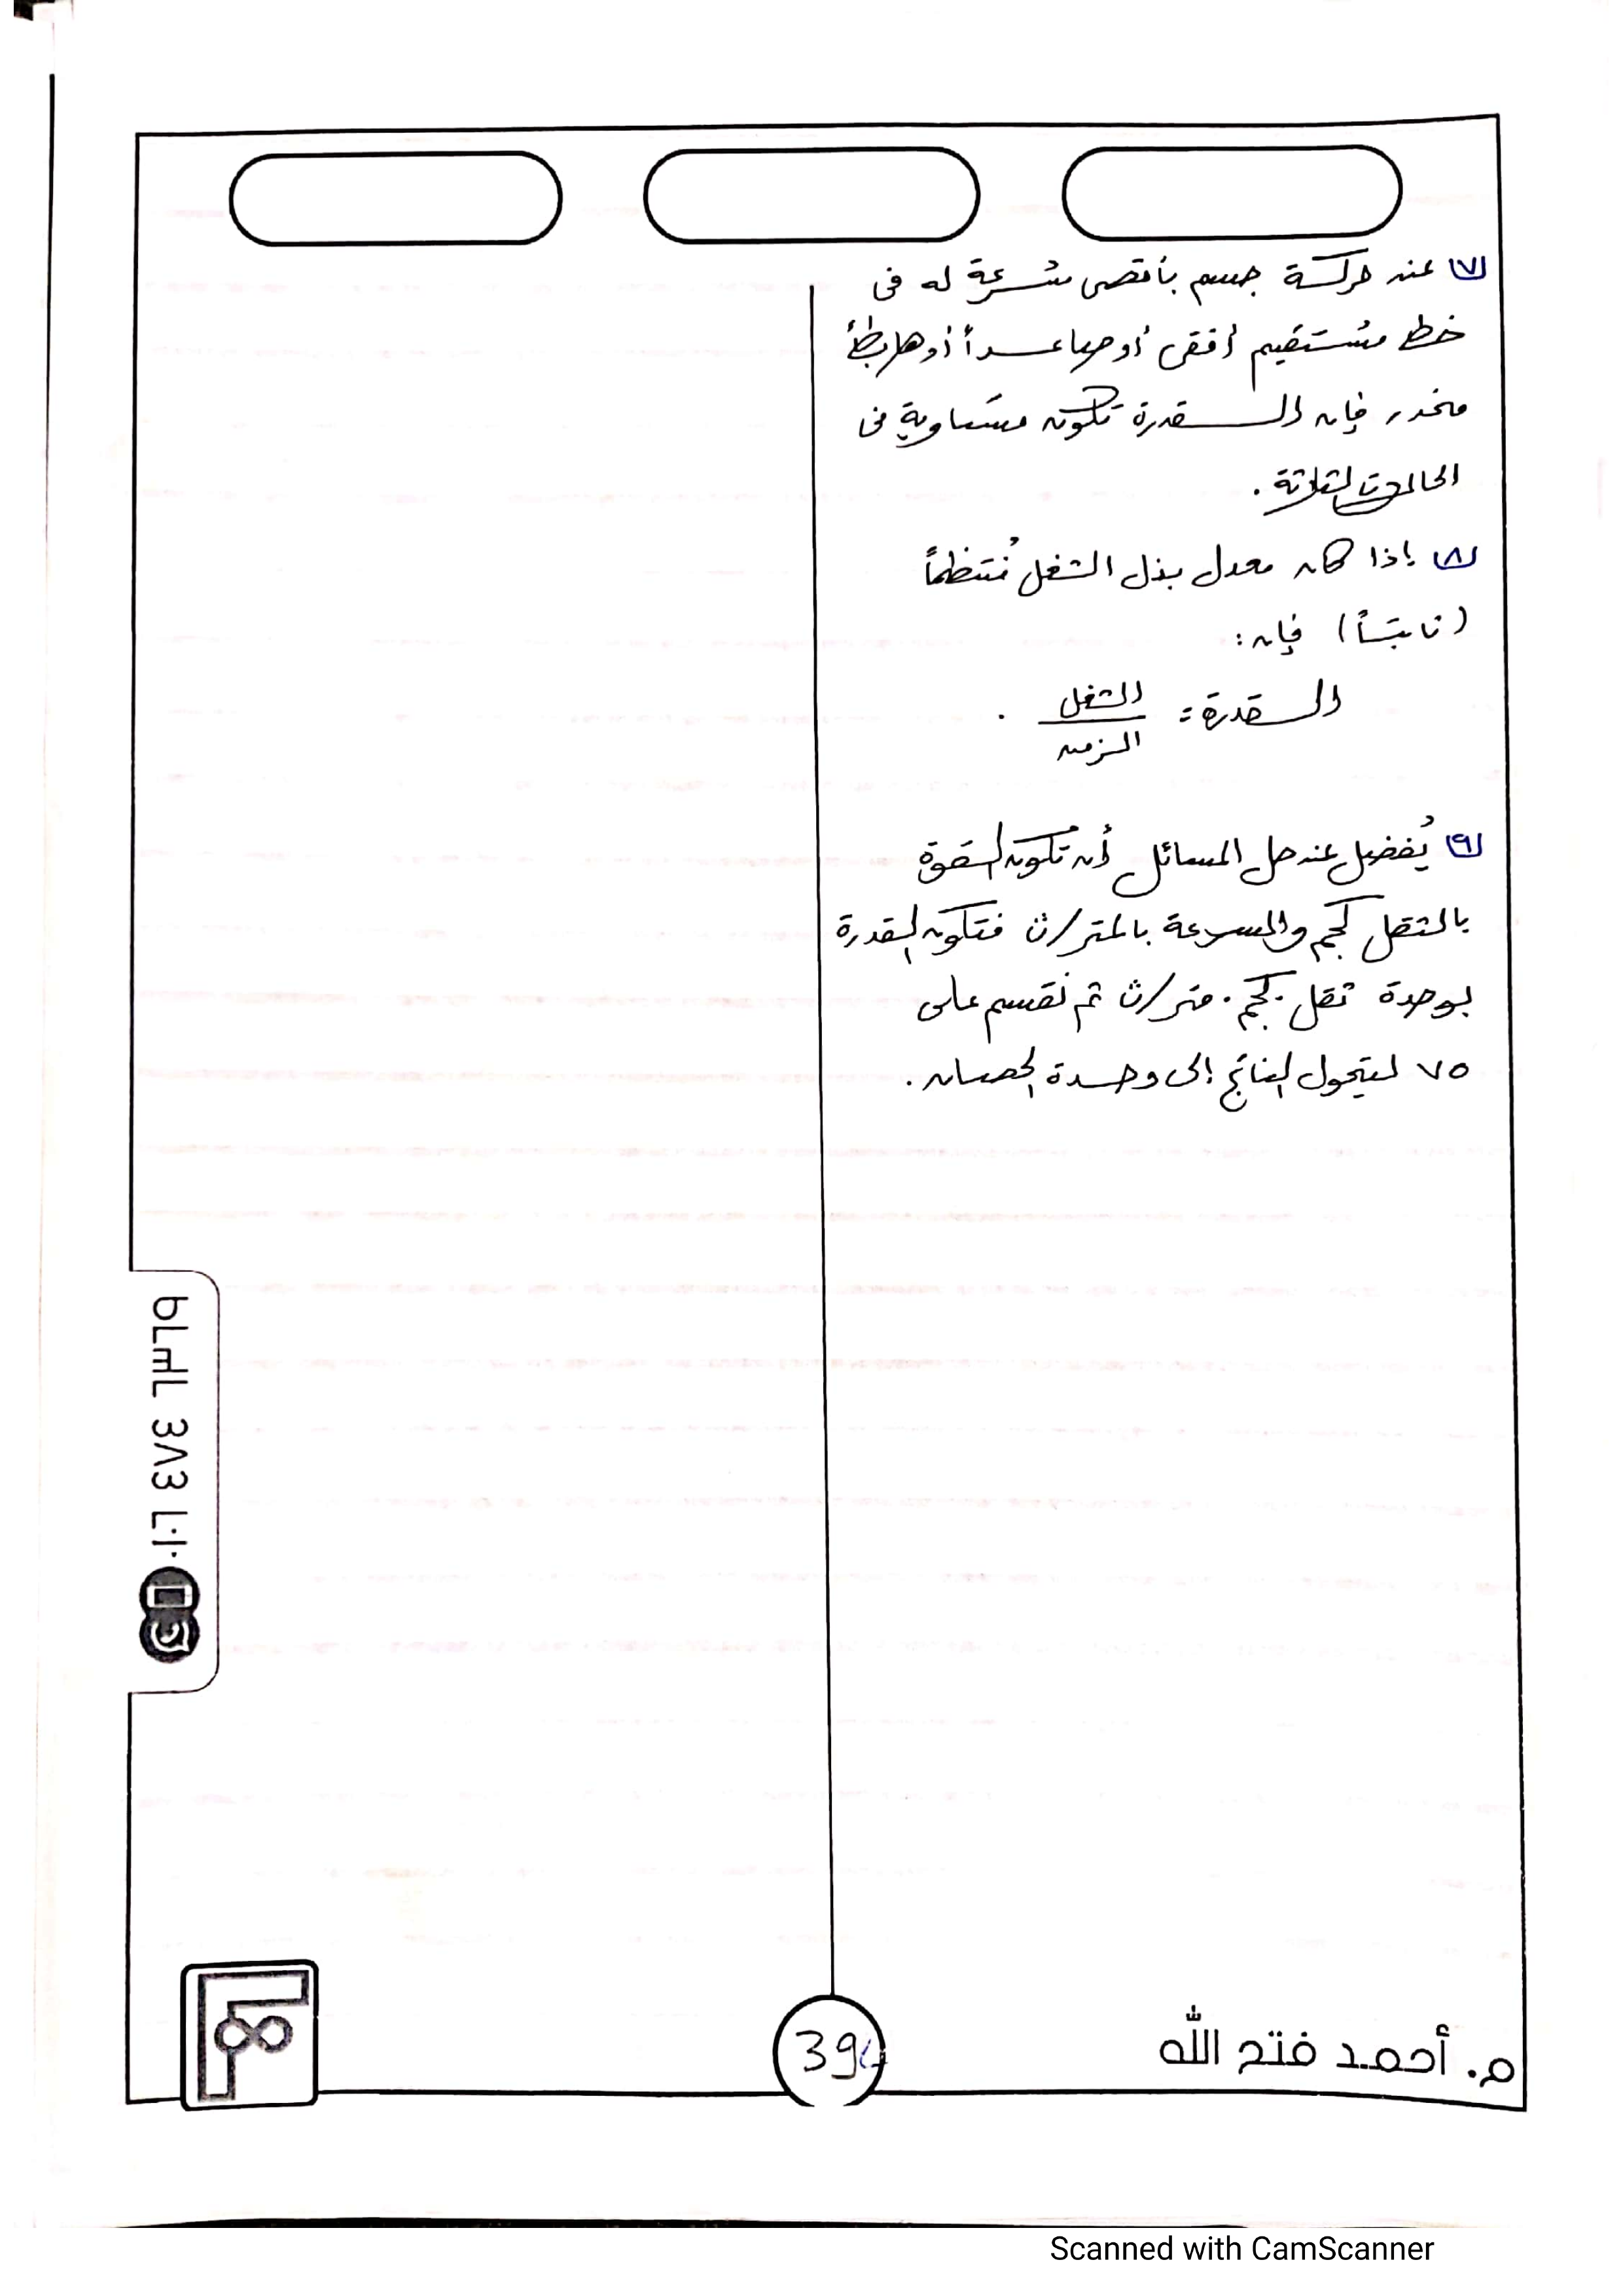 ٧ عند حركة جسم بأقصى سُرعة له فى
خط مُستقيم أفقى أو صاعداً أو هابطاً
منحدر فإن القدرة تكون متساوية فى
الحالات الثلاثة .
٨ إذا كان معدل بذل الشغل مُنتظماً
(ثابتاً) فإن :
القدرة = الشغل / الزمن .
٩ يُفضل عند حل المسائل أن تكون القوة
بالثقل كجم والسرعة بالمتر/ث فتكون القدرة
بوحدة ثقل . كجم . متر/ث ثم نقسم على
٧٥ ليتحول الناتج إلى وحدة الحصان .
م. أحمد فتح الله
Scanned with CamScanner